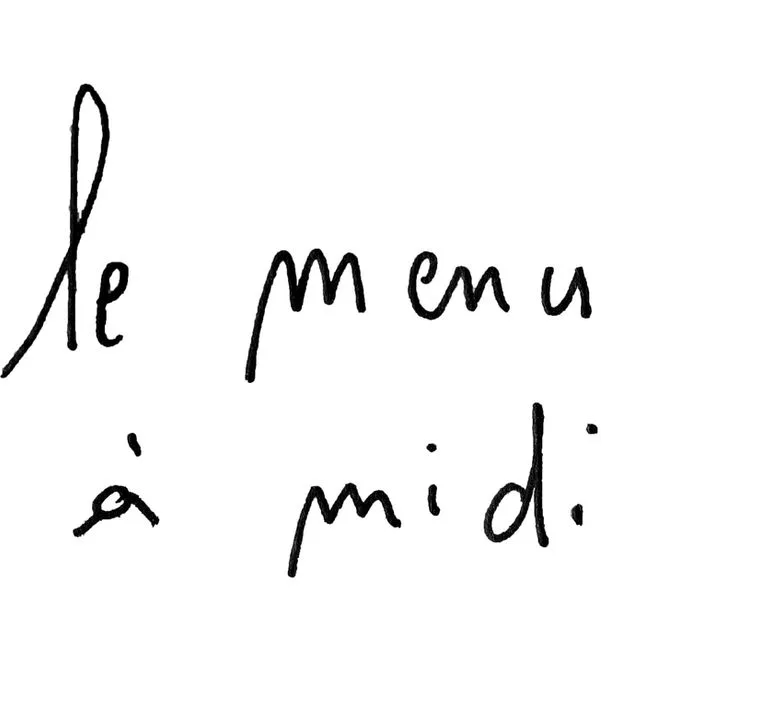 le menu
à midi